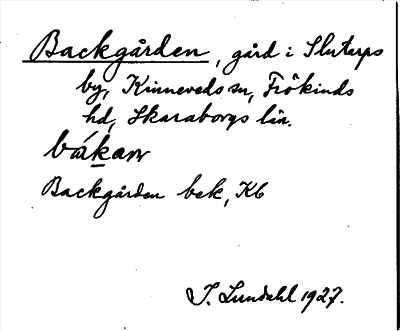 Backgården, gård i Slutarps
by, Kinneveds sn, Frökinds
hd, Skaraborgs län.
Backgården bek, Kb
I. Lundahl 1927.